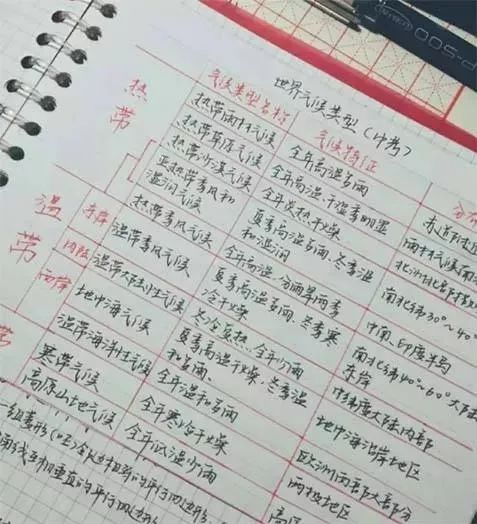 世界气候类型(中考)
气候类型名称 气候特征 分
热带
热带雨林气候 全年高温多雨 赤道附近
热带草原气候 全年高温,干湿季明显 雨林气候南
热带沙漠气候 全年炎热干燥
亚热带季风和 夏季高温多雨、冬季温 南北纬30°~40°
湿润气候 和湿润
热带季风气候 全年高温,分雨旱两季 中南、印度半岛
温带
东岸 温带季风气候 夏季高温多雨、冬季寒 南北纬40°~60°大陆
冷干燥 东岸
内陆 温带大陆性气候 冬冷夏热、全年少雨 中纬度大陆内部
西岸 地中海气候 夏季高温干燥,冬季温 地中海沿岸地区
和多雨、
温带海洋性气候 全年温和多雨 欧洲西部大部分
带
寒带气候 全年寒冷干燥 两极地区
高原山地气候 全年低温少雨
一组菱形
角线互相垂直的平行四边形
500